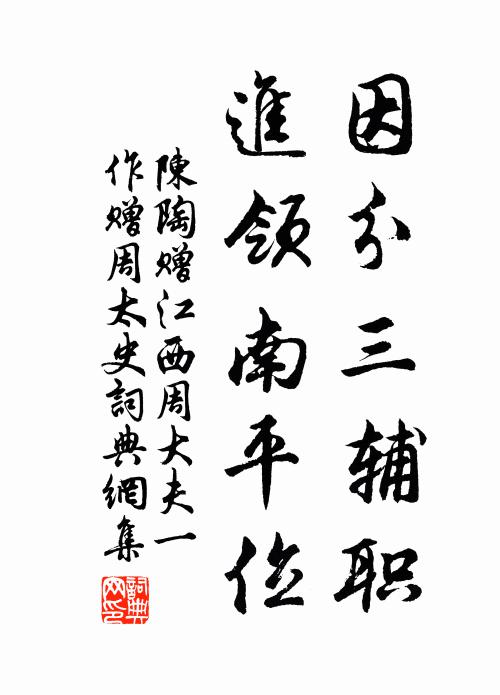 因分三辅职
進领南平位
陳陶赠江西周大夫一
作赠周太史詞典網集
詞典网印